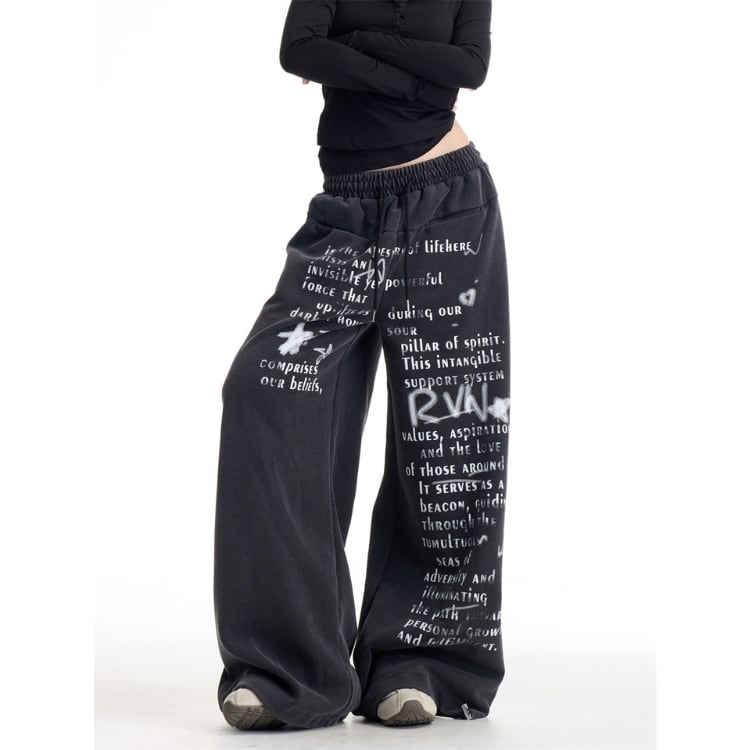 in the tapestry of lifehere
exists an
invisible yet powerful
force that
during our
dark hour
sour
pillar of spirit.
This intangible
comprises
support system
our beliefs,
RVN
values, aspiration
and the love
of those around
It serves as a
beacon, guidin
through the
tumultuous
seas of
adversity and
illuminating
the path
personal grow
and fulfillment.